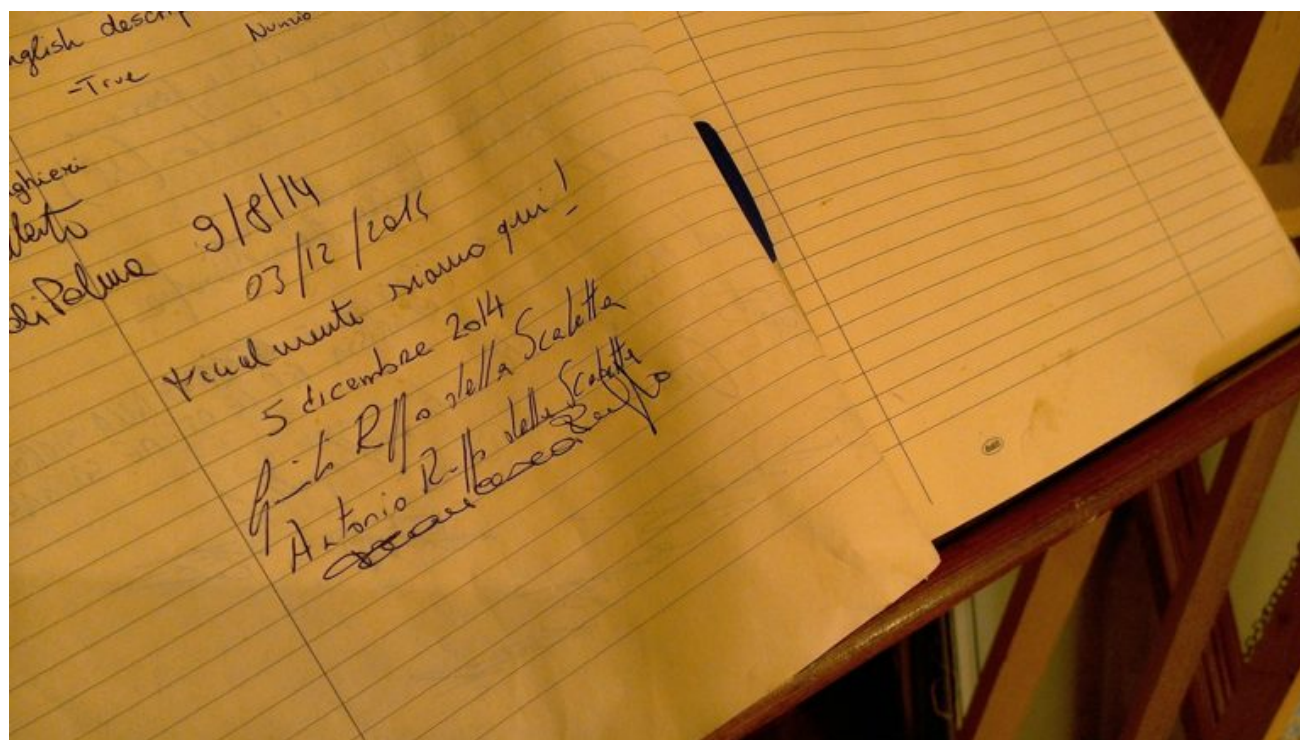 nglish descrip
Nunzio
-True
ghieri
lberto
di Palma 9/8/14
03/12/2014
Finalmente siamo qui!
5 dicembre 2014
Guido Ruffo della Scaletta
Antonio Ruffo della Scaletta